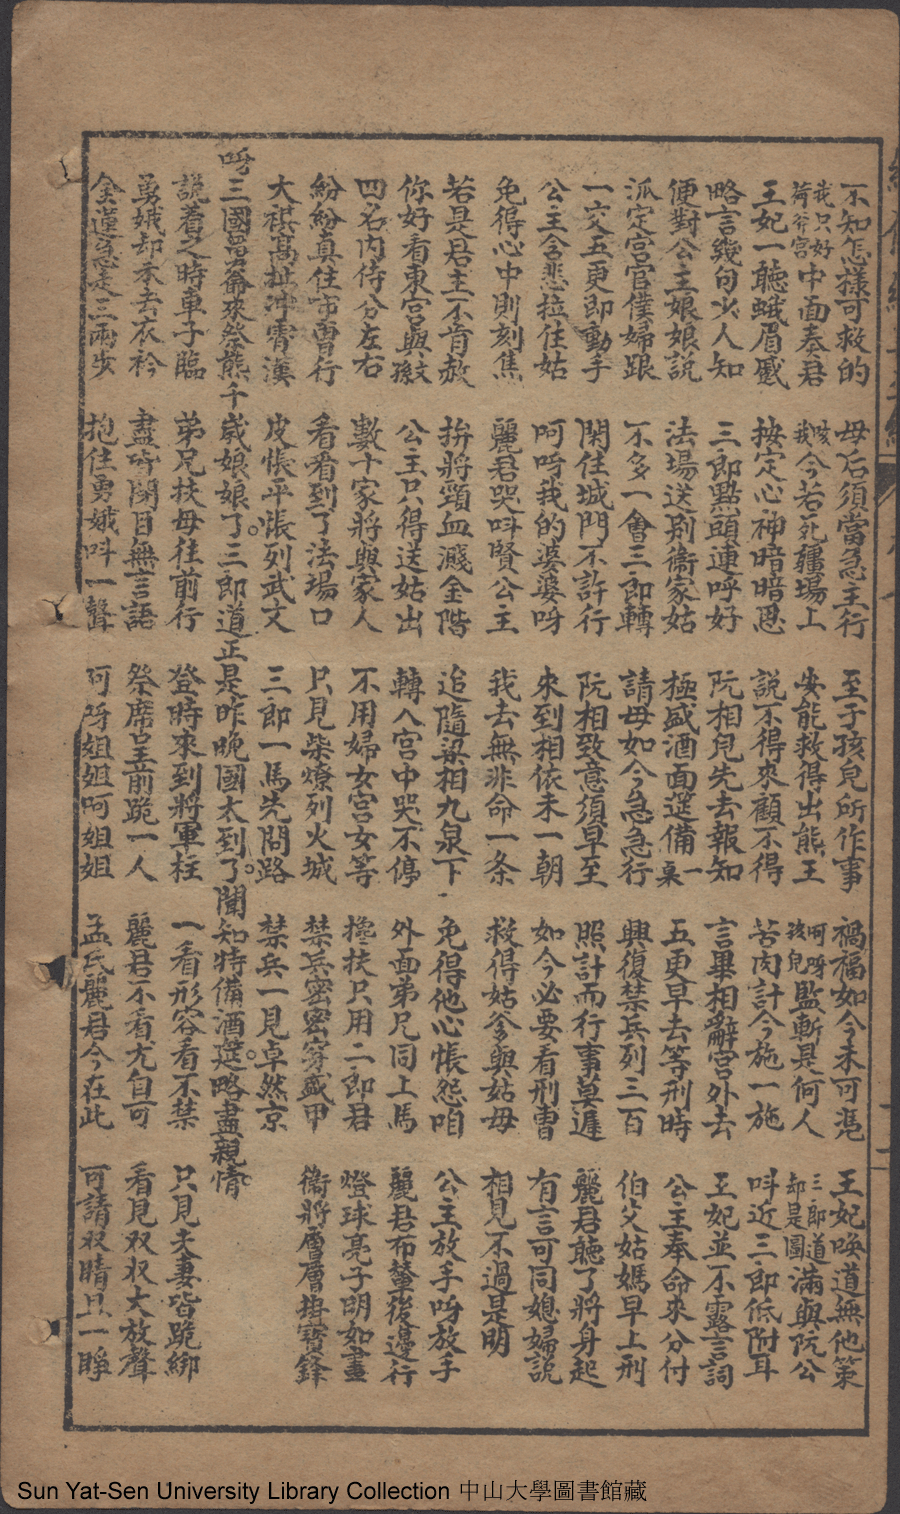 不知怎樣可救的 母后須當急主行 至于孩兒所作事 禍福如今未可憑 王妃喚道無他策
我只好荷斧宮中面奏君 咳我今若死疆場上 安能救得出熊王 呵呀孩兒監斬是何人 三郎道却是圖滿與阮公
王妃一聽蛾眉蹙 按定心神暗暗思 說不得來顧不得 苦肉計今施一施 呌近三郎低附耳
略言幾句少人知 三郎點頭連呼好 阮相兒先去報知 言畢相辭宮外去 王妃並不露言詞
便對公主娘娘說 法場送別衛家姑 極盛酒面選備一桌 五更早去等刑時 公主奉命來分付
派定宮官僕婦跟 不多一會三郎轉 請母如今急急行 興復禁兵列三百 伯父姑媽早上刑
一交五更即動手 閉住城門不許行 阮相致意須早至 照計而行事莫遲 麗君聽了將身起
公主含悲拉住姑 呵呀我的婆婆呀 來到相依未一朝 如今必要看刑曹 有言可同媳婦說
免得心中則刻焦 麗君哭呌賢公主 我去無非命一条 救得姑爹與姑母 相見不過是明
若是君主不肯赦 拚將頸血濺金階 追隨梁相九泉下 免得他心悵怨咱 公主放手呀放手
你好看東宮與 公主只得送姑出 轉入宮中哭不停 外面弟兄同上馬 麗君布輦後邊行
四名內侍分左右 數十家將與家人 不用婦女宮女等 攙扶只用二郎君 燈球亮子明如晝
紛紛真住市曹行 看看到了法場口 只見柴燎列火城 禁兵密密穿盔甲 衛將層層掛寶鋒
大旗高扯冲霄漢 皮帳平帳列武文 三郎一馬先問路 禁兵一見卓然京
呀三國舅爺來祭熊千歲娘娘了。三郎道正是昨晚國太到了。聞知特備酒筵。略盡親情。
說着之時車子臨 弟兄扶母往前行 登時來到將軍柱 一看形容看不禁 只見夫妻皆跪綁
勇娥却本去衣衿 盡皆閉目無言語 祭席呈前跪一人 麗君不看尤自可 看見双双大放聲
金蓮急走三兩步 抱住勇娥呌一聲 呵呀姐姐呵姐姐 孟氏麗君今在此 可請双睛且一睜
Sun Yat-Sen University Library Collection 中山大學圖書館藏